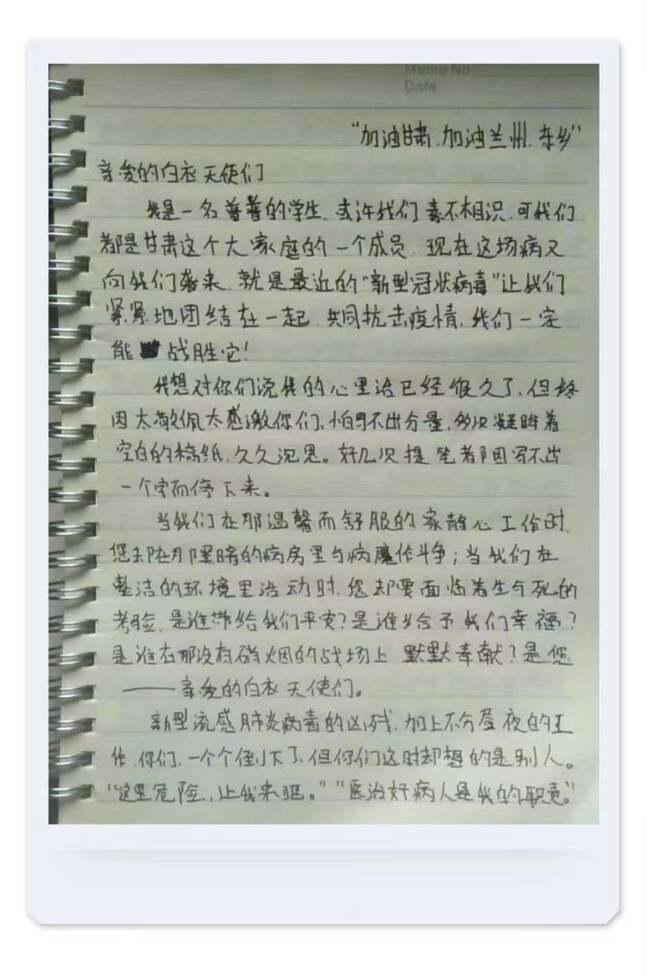 Memo No
Date
“加油甘肃.加油兰州.东乡”
亲爱的白衣天使们
我是一名普普的学生.或许我们素不相识.可我们
都是甘肃这个大家庭的一个成员.现在这场病又
向我们袭来.就是最近的“新型冠状病毒”让我们
紧紧地团结在一起.共同抗击疫情.我们一定
能战胜它!
我想对你们说我的心里话已经很久了,但终
因太敬佩太感激你们,怕写不出分量,多次凝眸着
空白的稿纸,久久沉思。好几次提笔者都因写不出
一个字而停下来。
当我们在那温馨而舒服的家静心工作时.
您却在阴暗的病房里与病魔作斗争;当我们在
整洁的环境里活动时.您却要面临着生与死的
考验.是谁带给我们平安?是谁给予我们幸福?
是谁在那没有硝烟的战场上 默默奉献?是您
——亲爱的白衣天使们。
新型流感肺炎病毒的凶残,加上不分昼夜的工
作.你们.一个个倒下了,但你们这时却想的是别人。
“这里危险,让我来吧。”“医治好病人是我的职责。”